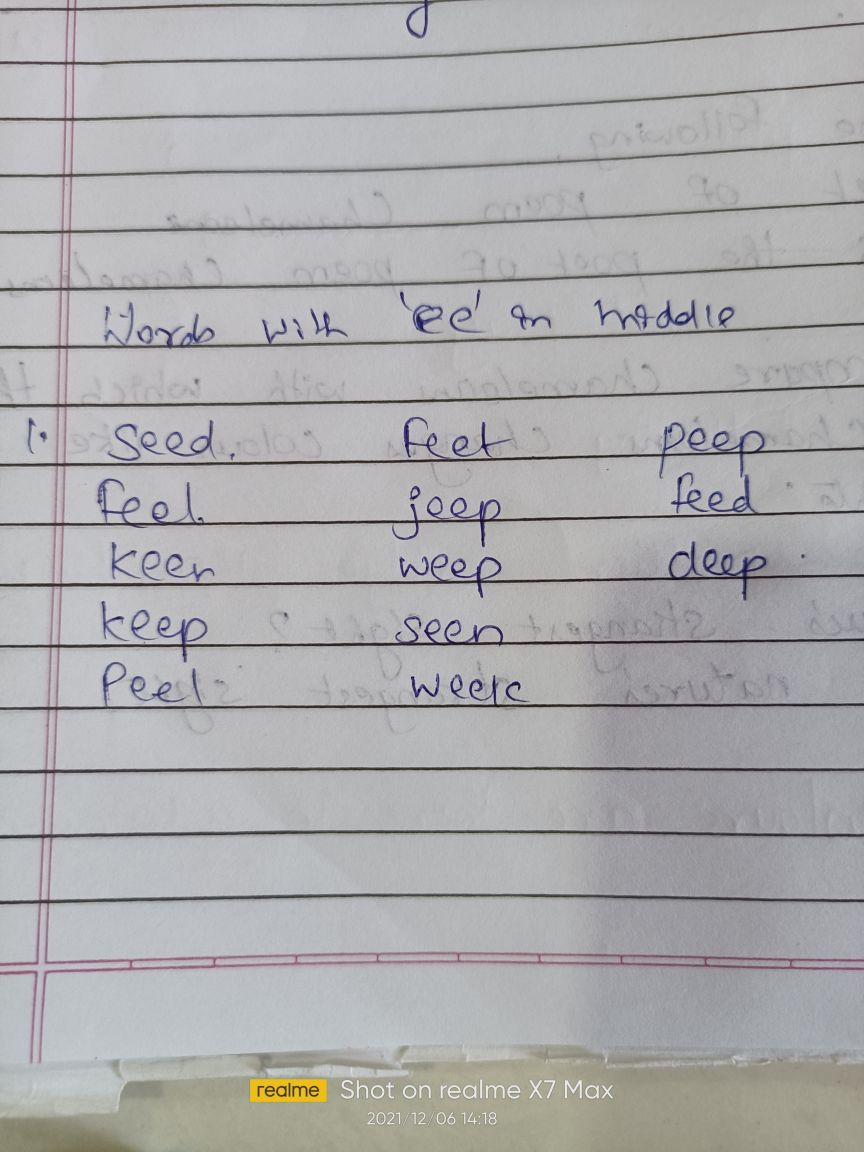 Words with 'ee' in middle
1. Seed. feet peep
feel. jeep feed
keen weep deep.
keep seen
Peel week
realme Shot on realme X7 Max
2021/12/06 14:18